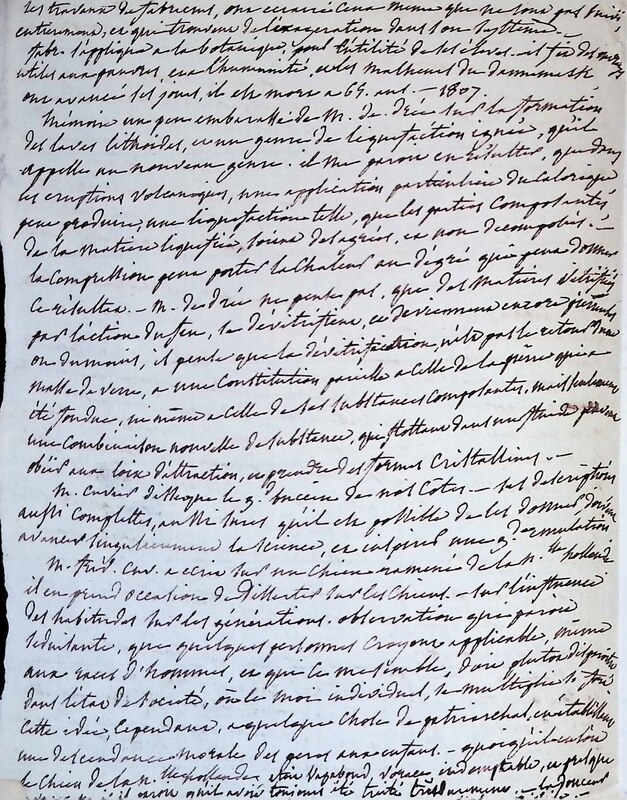 les travaux de fabricius, ont censuré ceux meme que ne sont pas suivis
entierement, ce qui trouvent de l'exageration dans son systeme. –
fabr. l'applique a la botanique, pour l'utilité de ses eleves. il fit des
utiles aux pauvres, et a l'humanité, et les malheurs du dannemarck
ont avancé ses jours, il est mort a 65. ans. – 1807.
Mémoire un peu embarassé de M. de drée sur la formation
des laves lithoides, et un genre de liquefaction ignée, qu'il
appelle un nouveau genre. il me paroit en résulter, que dans
les eruptions volcaniques, une application particuliere du calorique
peut produire, une liquefaction telle, que les parties composantes
de la matiere liquefiée, soient desagrées, et non decomposées. –
la compression peut porter la chaleur au dégré qui peut donner
ce résultat. – M. de drée ne pense pas, que des matieres vitrifiées
par l'action du feu, se dévitrifient, et deviennent encore pierreuses
ou du moins, il pense que la dévitrification, n'est pas le retour d'une
masse de verre, a une constitution pareille a celle de la pierre qui a
été fondue, ni même a celle de ses substances composantes, mais seulement
une combinaison nouvelle de substance, qui flottant dans un fluide peuvent
obéir aux loix d'attraction, et prendre des formes cristallines. –
M. cuvier disseque le g.d buccin de nos côtes. – ses descriptions
aussi complettes, aussi sures qu'il est possible de les donner, doivent
avancer singulierement la science, et inspirer une g.de emulation.
M. fréd. cuv. a ecrit sur un chien ramené de la n.lle hollande
il en prend occasion de disserter sur les chiens. – sur l'influence
des habitudes sur les générations. observation qui paroit
séduisante, que quelques personnes croyent applicable, même
aux races d'hommes, ce qui ce me semble, doit plutot disparoitre
dans l'état de société, où le moi individuel, se multiplie
cette idée, cependant, a quelque chose de patriarchal, en établissant
une descendance morale des peres aux enfans. – quoiqu'il en soit
le chien de la n. hollande etoit vagabond, vorace, indomptable, et
qu'il avoit toujours été traité